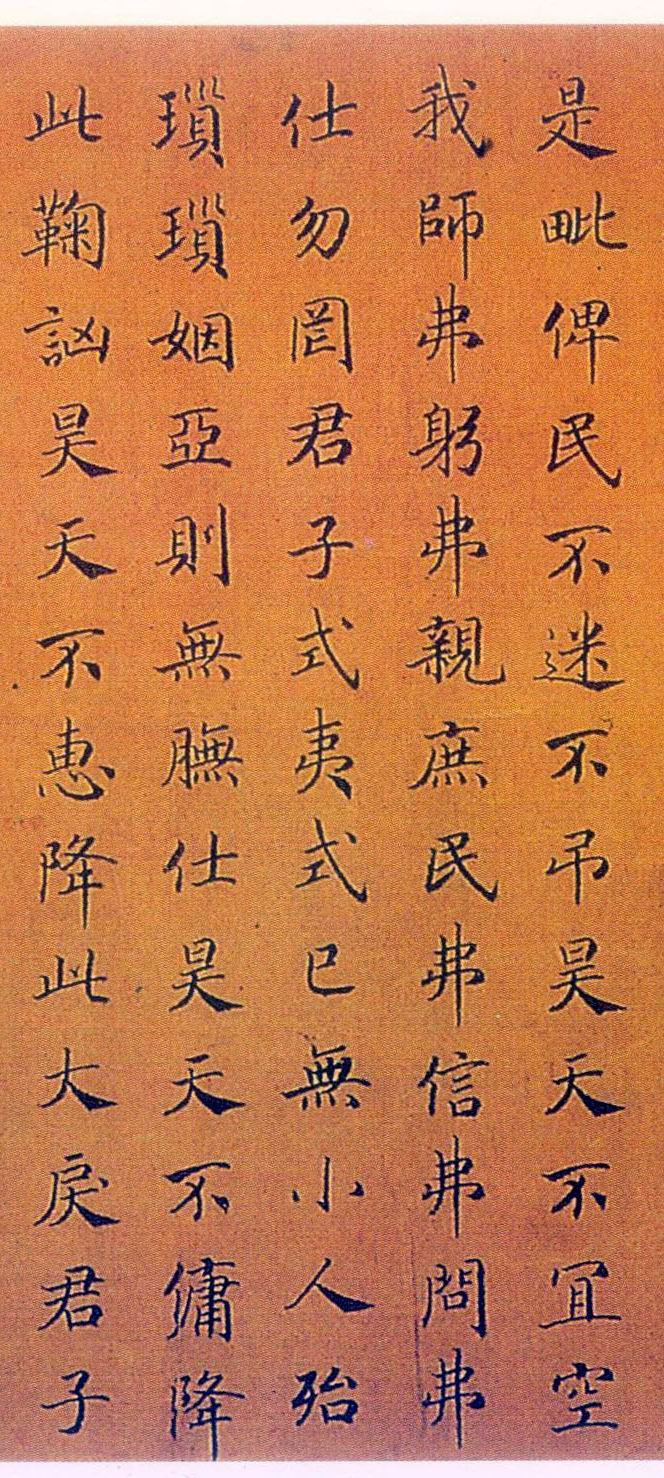 是毗俾民不迷不吊昊天不冝空
我師弗躬弗親庶民弗信弗問弗
仕勿罔君子式夷式已無小人殆
瑣瑣姻亞則無膴仕昊天不傭降
此鞠訩昊天不惠降此大戾君子